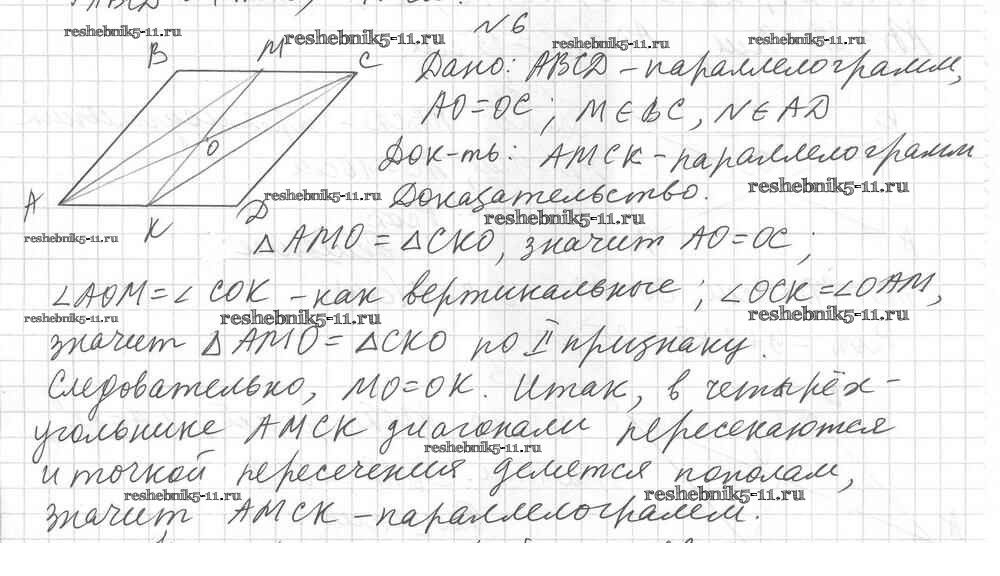 №6
B M C
Дано: ABCD – параллелограмм,
AO=OC; M∈BC, N∈AD
O
Док-ть: AMCK – параллелограмм
A K D
Доказательство.
△AMO = △CKO, значит AO=OC;
∠AOM=∠COK – как вертикальные; ∠OCK=∠OAM,
значит △AMO = △CKO по II признаку.
Следовательно, MO=OK. Итак, в четырёх-
угольнике AMCK диагонали пересекаются
и точкой пересечения делется пополам,
значит, AMCK – параллелограмм.
reshebnik5-11.ru
reshebnik5-11.ru
reshebnik5-11.ru
reshebnik5-11.ru
reshebnik5-11.ru
reshebnik5-11.ru
reshebnik5-11.ru
reshebnik5-11.ru
reshebnik5-11.ru
reshebnik5-11.ru
reshebnik5-11.ru
reshebnik5-11.ru
reshebnik5-11.ru
reshebnik5-11.ru